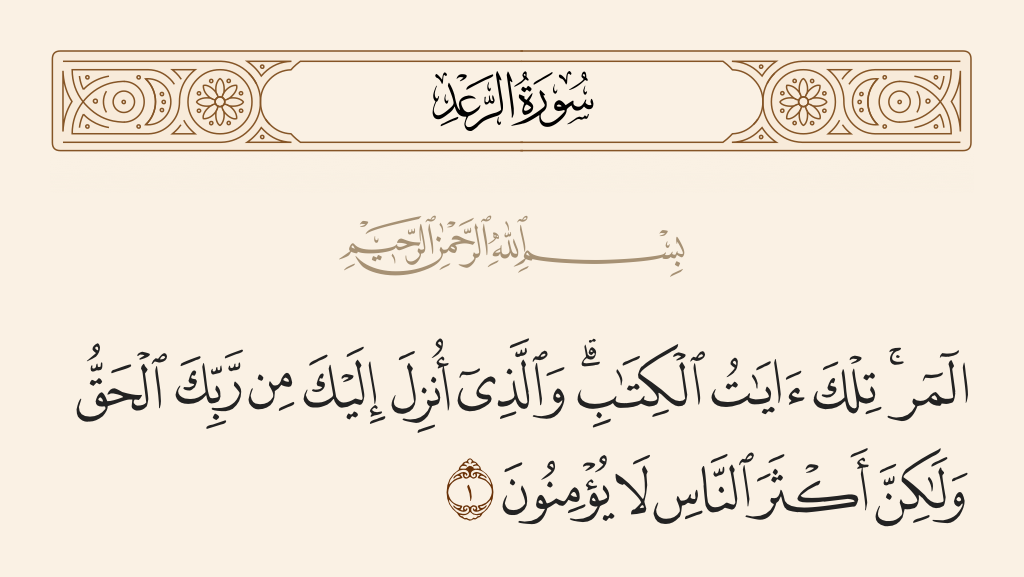 سُورَةُ الرَّعْدِ
بِسْمِ ٱللَّهِ ٱلرَّحْمَٰنِ ٱلرَّحِيمِ
الٓمٓر ۚ تِلْكَ ءَايَٰتُ ٱلْكِتَٰبِ ۗ وَٱلَّذِىٓ أُنزِلَ إِلَيْكَ مِن رَّبِّكَ ٱلْحَقُّ
وَلَٰكِنَّ أَكْثَرَ ٱلنَّاسِ لَا يُؤْمِنُونَ ١